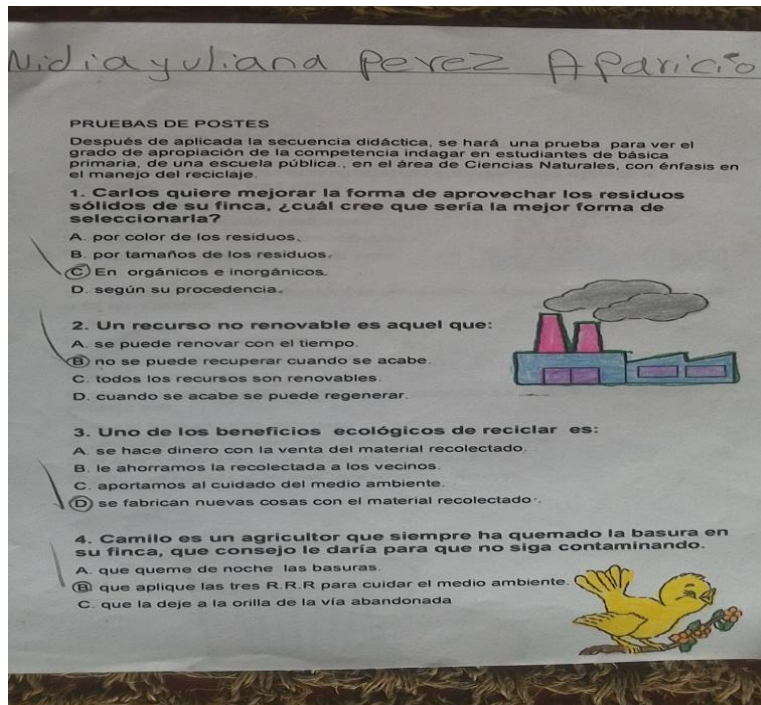 Nidia yuliana Perez Aparicio
PRUEBAS DE POSTES
Después de aplicada la secuencia didáctica, se hará una prueba para ver el
grado de apropiación de la competencia indagar en estudiantes de básica
primaria, de una escuela pública., en el área de Ciencias Naturales, con énfasis en
el manejo del reciclaje.
1. Carlos quiere mejorar la forma de aprovechar los residuos
sólidos de su finca, ¿cuál cree que sería la mejor forma de
seleccionarla?
A. por color de los residuos.
B. por tamaños de los residuos.
C. En orgánicos e inorgánicos.
D. según su procedencia.
2. Un recurso no renovable es aquel que:
A. se puede renovar con el tiempo.
B. no se puede recuperar cuando se acabe.
C. todos los recursos son renovables.
D. cuando se acabe se puede regenerar.
3. Uno de los beneficios ecológicos de reciclar es:
A. se hace dinero con la venta del material recolectado.
B. le ahorramos la recolectada a los vecinos.
C. aportamos al cuidado del medio ambiente.
D. se fabrican nuevas cosas con el material recolectado.
4. Camilo es un agricultor que siempre ha quemado la basura en
su finca, que consejo le daría para que no siga contaminando.
A. que queme de noche las basuras.
B. que aplique las tres R.R.R para cuidar el medio ambiente.
C. que la deje a la orilla de la vía abandonada